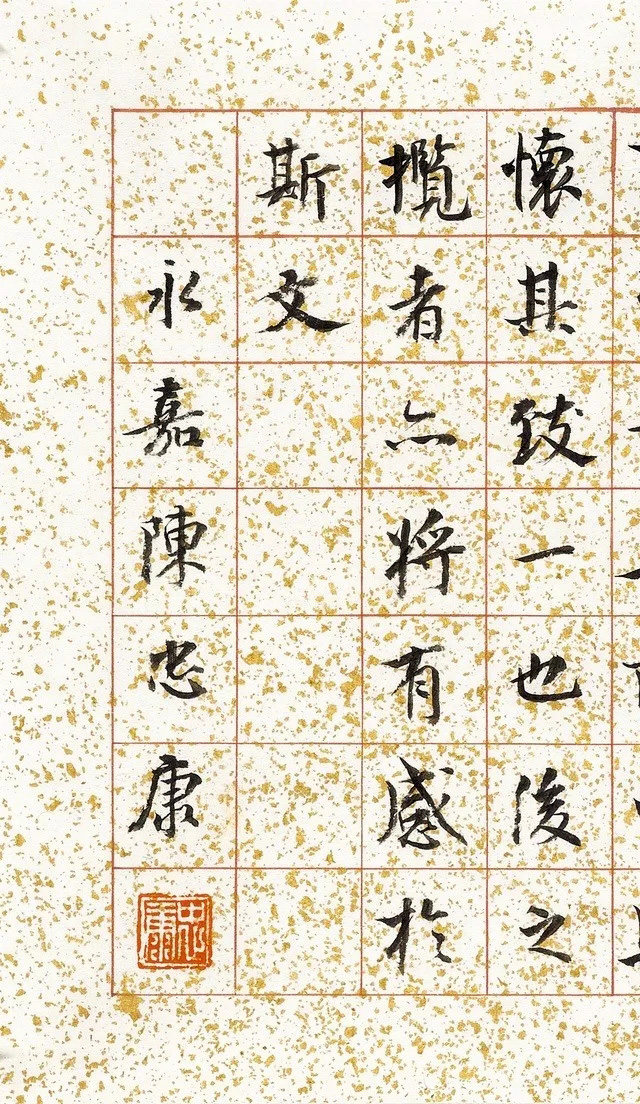 懷其致一也後之
攬者亦將有感於
斯文
永嘉陳忠康
忠康